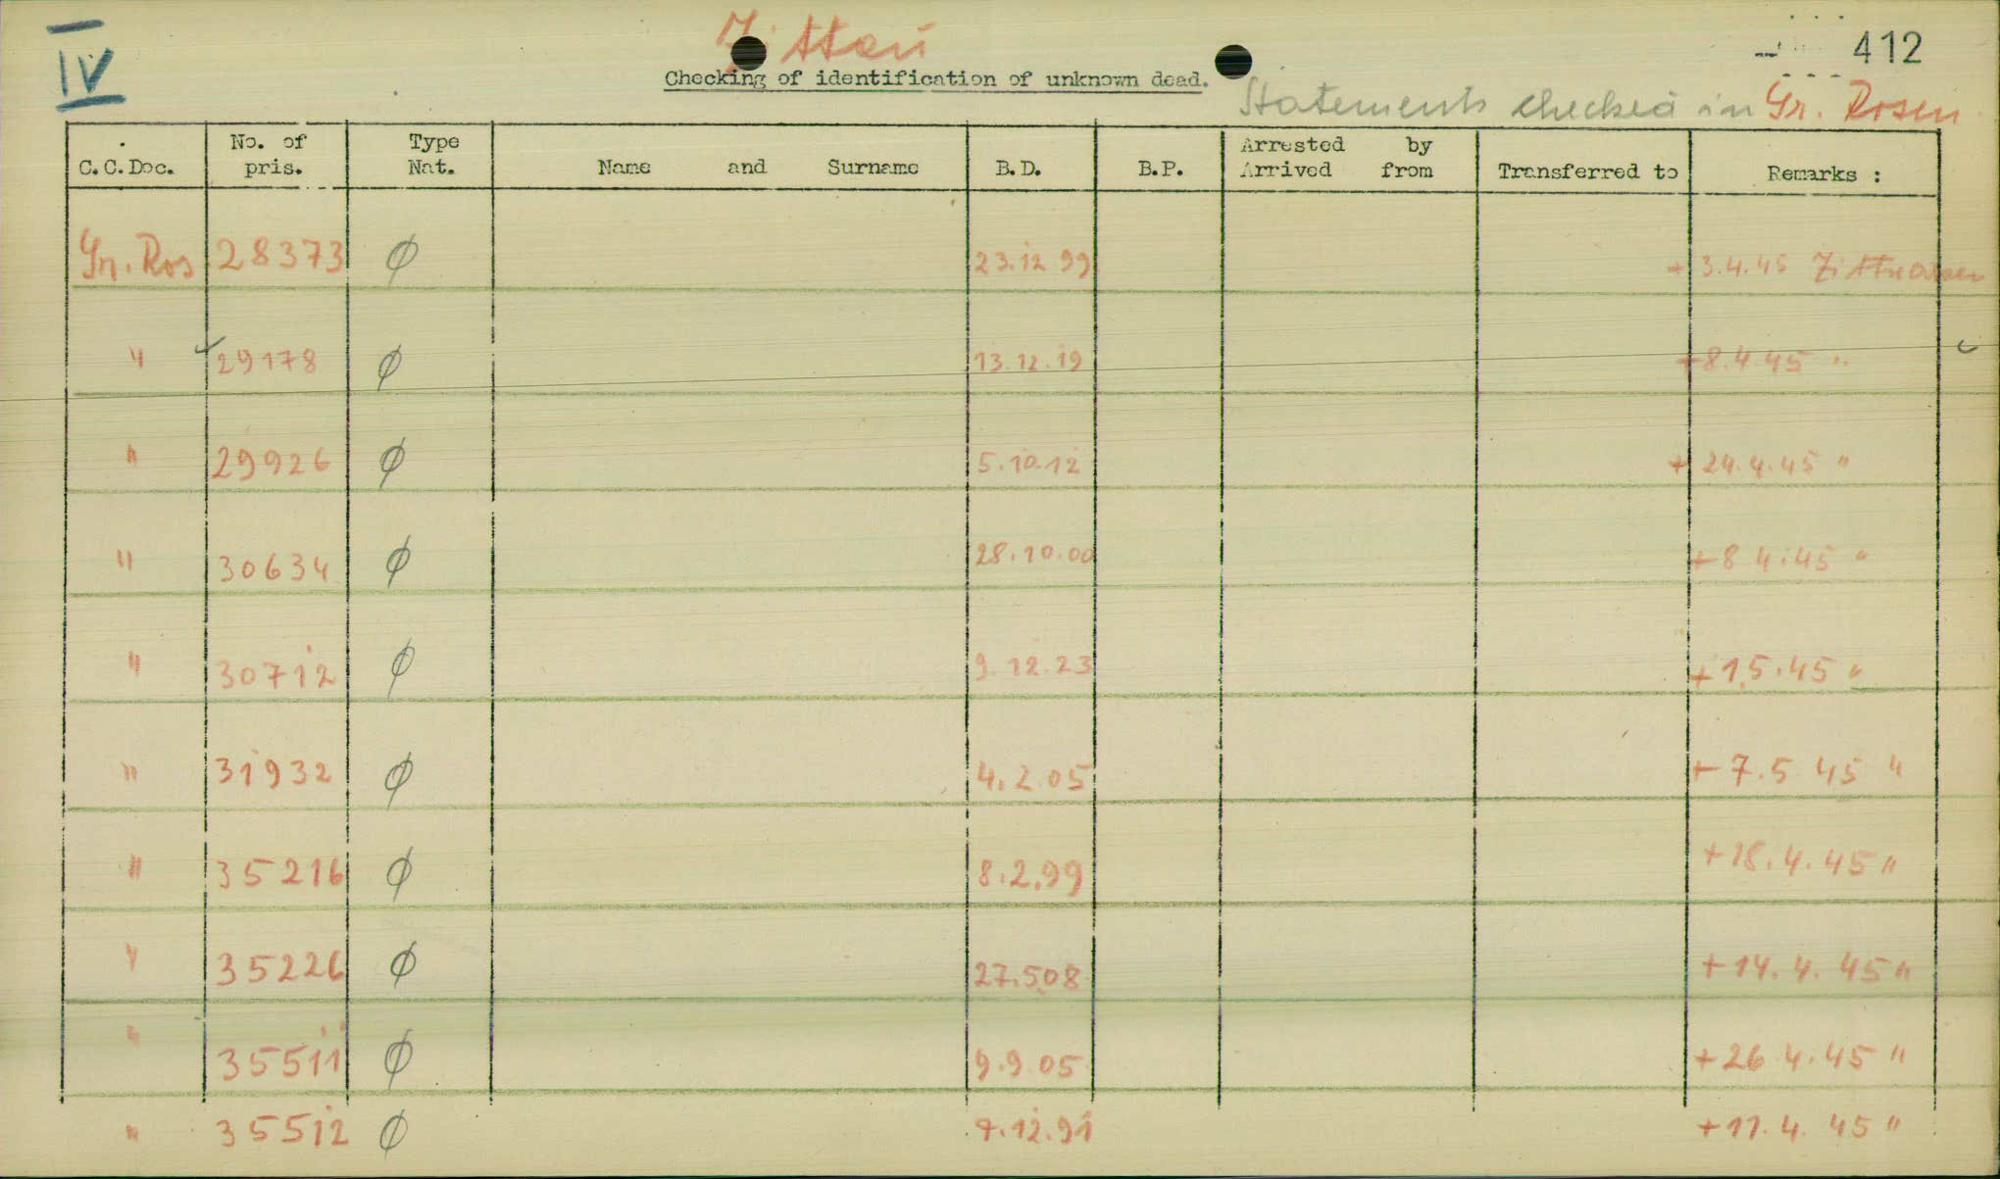 IV
Zittau
412
Checking of identification of unknown dead.
Statements checked in Gr. Rosen
C.C.Doc. No. of pris. Type Nat. Name and Surname B.D. B.P. Arrested by Arrived from Transferred to Remarks :
Gr. Ros 28373 ϕ 23.12 99 + 3.4.45
" 29178 ϕ 13.12.19 +8.4.45 "
" 29926 ϕ 5.10.12 + 24.4.45 "
" 30634 ϕ 28.10.00 +8 4.45 "
" 30712 ϕ 9.12.23 + 1.5.45 "
" 31932 ϕ 4.2.05 + 7.5 45 "
" 35216 ϕ 8.2.99 +18.4.45 "
" 35226 ϕ 27.5.08 +14.4.45 "
" 35511 ϕ 9.9.05 +26 4.45 "
" 35512 ϕ 7.12.91 +11.4.45 "